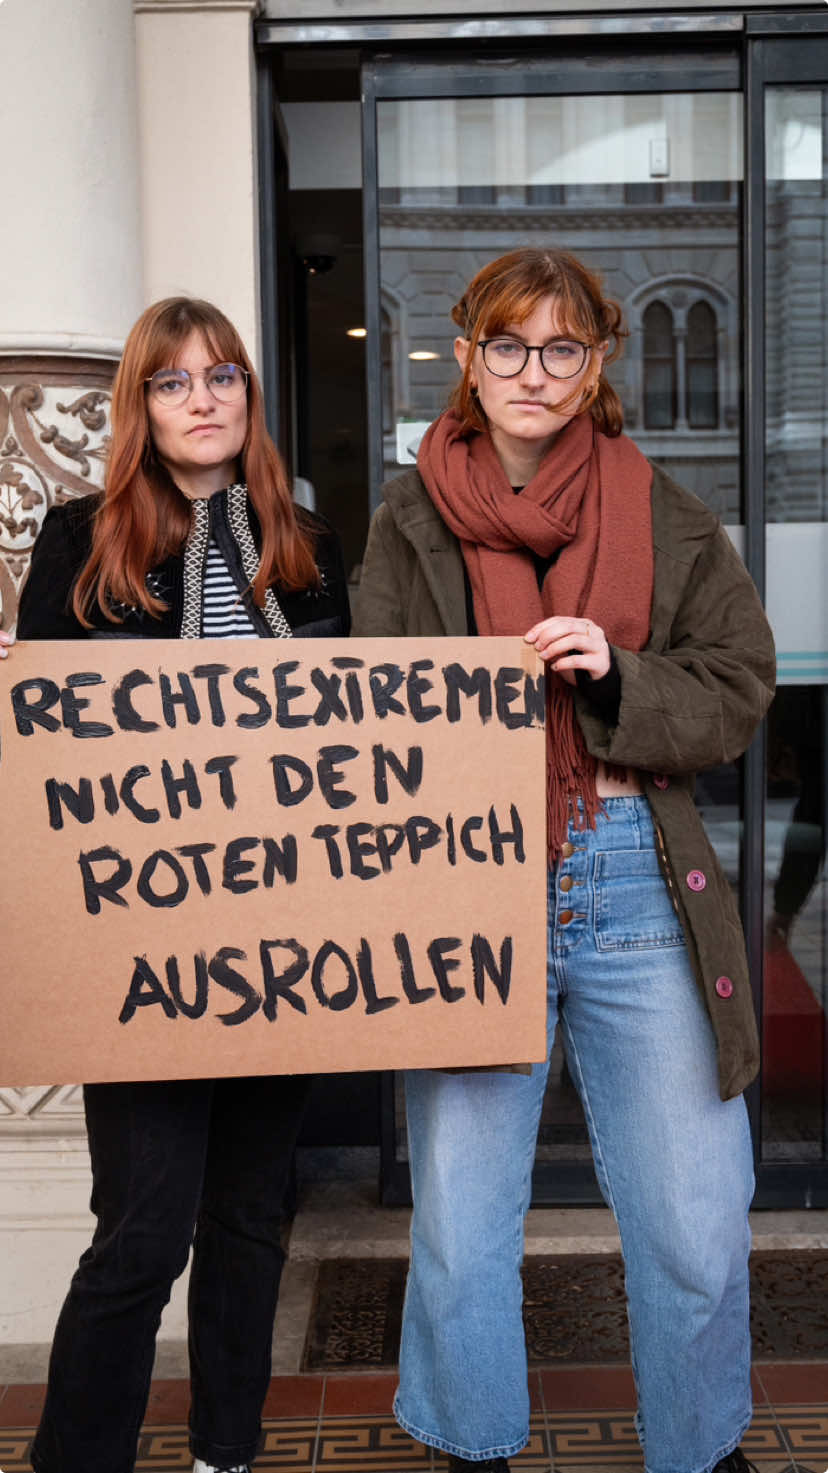 RECHTSEXTREMEN
NICHT DEN
ROTEN TEPPICH
AUSROLLEN